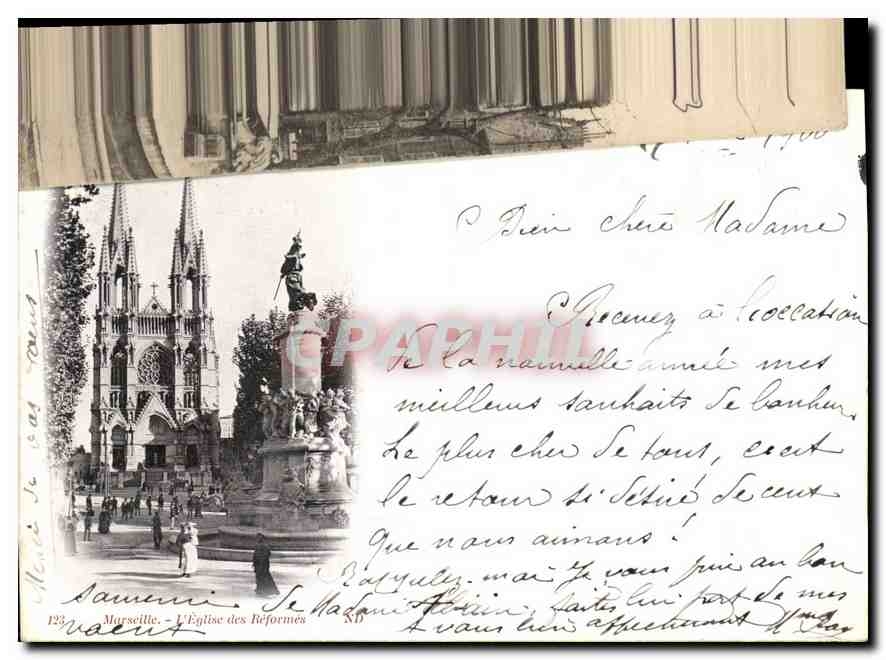 1900
Bien chère Madame
Recevez à l'occasion
de la nouvelle année mes
meilleurs souhaits de bonheur.
Le plus cher de tous, c'est
le retour si désiré de ceux
que nous aimons!
Rappelez-moi je vous prie au bon
souvenir de Madame faites lui part de mes
voeux
à vous bien affectueusement
Merci de vos vœux
CPAPHIL
123 Marseille. - l'Eglise des Réformés ND